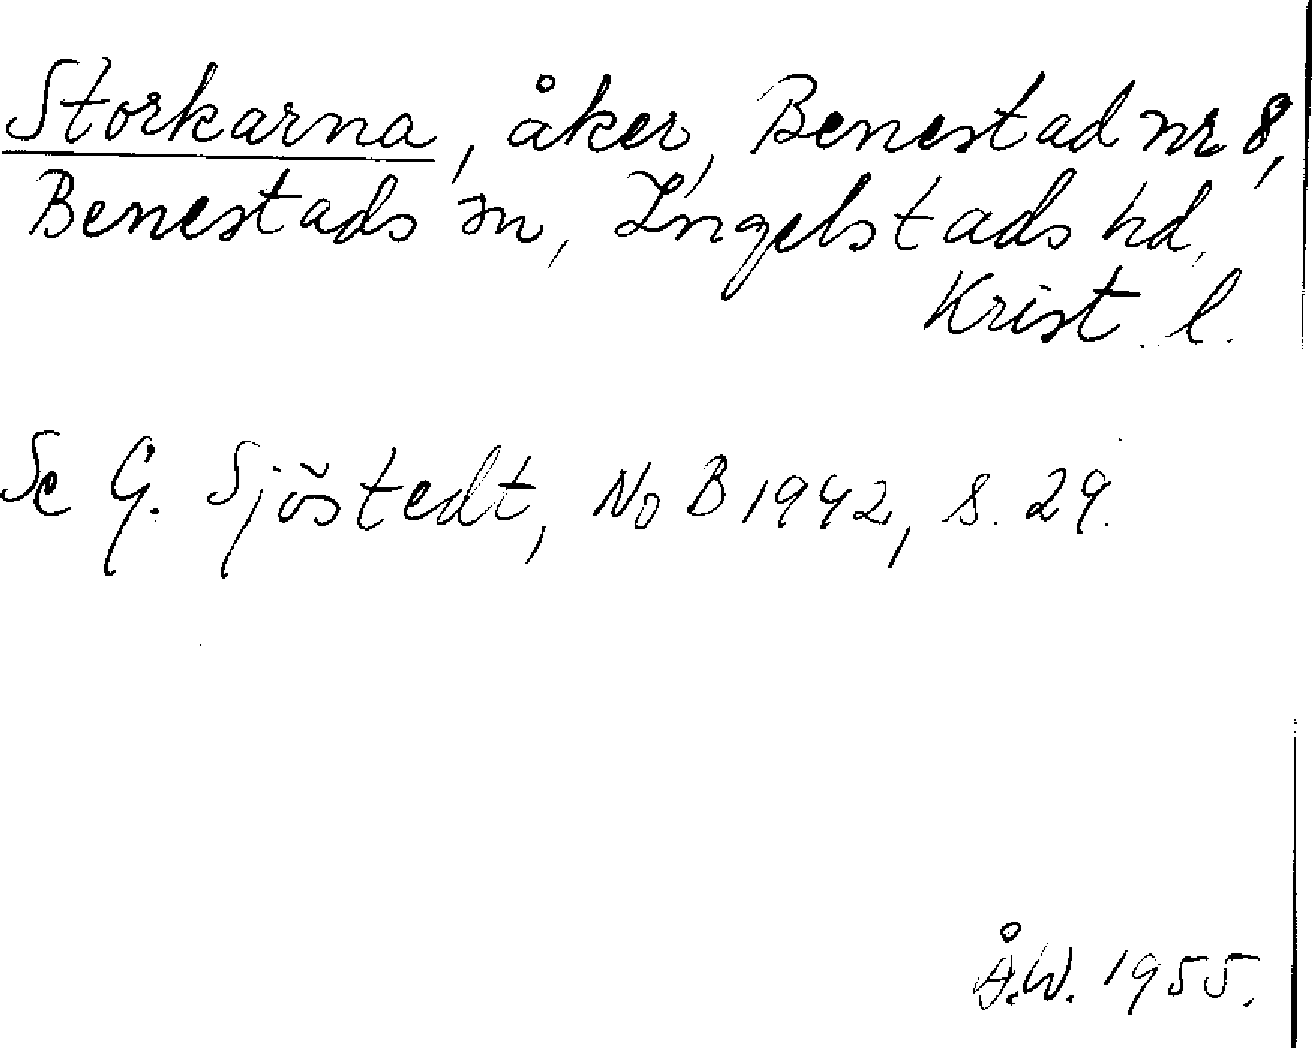 Storkarna, åker, Benestad nr 8,
Benestads sn, Ingelstads hd,
Krist. l.
Se G. Sjöstedt, NoB 1942, s. 29.
Å.W. 1955.